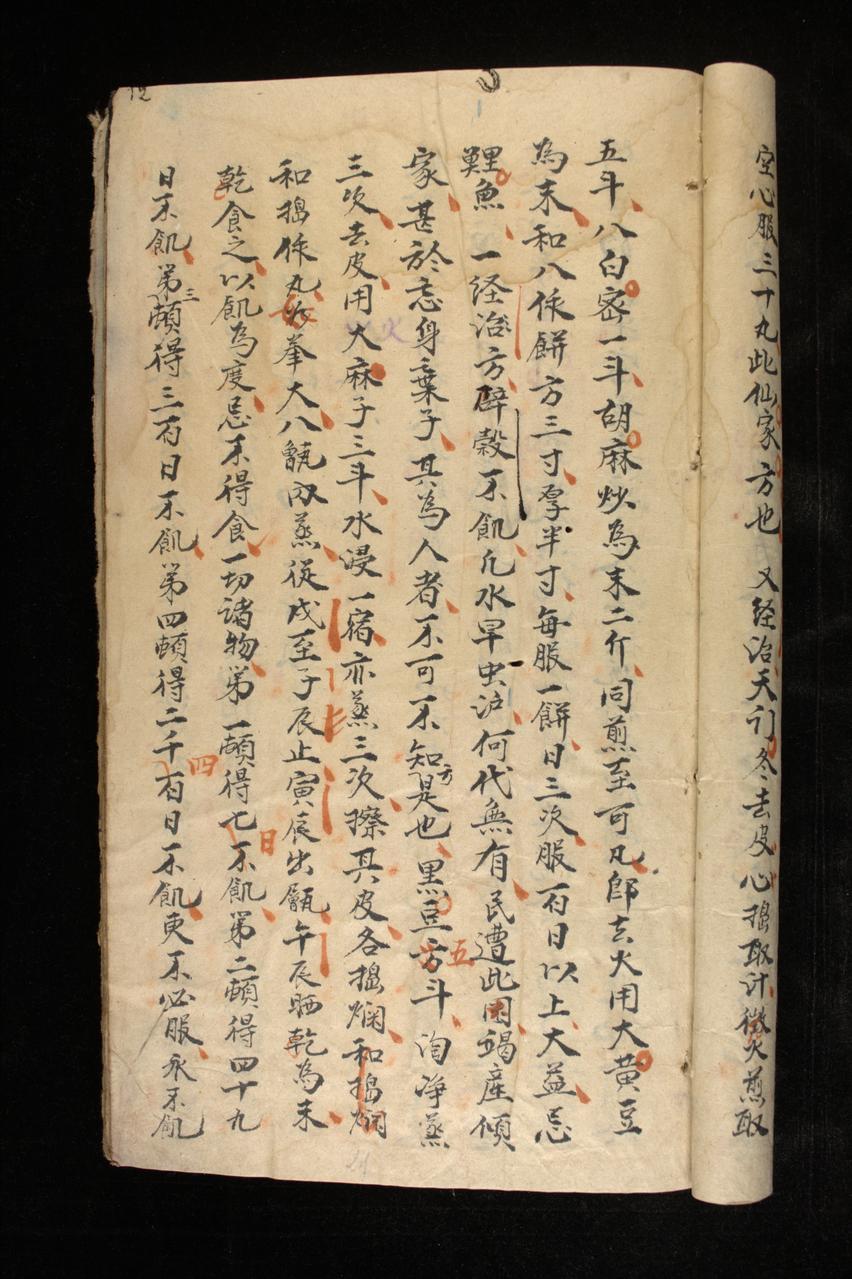 空心服三十丸此仙家方也 又経治天门冬去皮心搗取汁微火煎取
五斗八白密一斗胡麻炒為末二斤同煎至可丸即去火用大黄豆
為末和八作餅方三寸厚半寸每服一餅日三次服百日以上大益忌
鯉魚 一経治方辟榖不飢凡水旱虫沪何代無有民遭此困竭産傾
家甚於忘身棄子其為人者不可不知是方也 黒豆五斗淘净蒸
三次去皮用大麻子三斗水浸一宿亦蒸三次擦其皮各搗爛和搗爛
和搗作丸如拳大八甑内蒸從戌至子辰止寅辰出甑午辰晒乾為末
乾食之以飢為度忌不得食一切诸物第一頓得七日不飢第二頓得四十九
日不飢第三頓得三百日不飢第四頓得二千四百日不飢更不必服永不飢
12